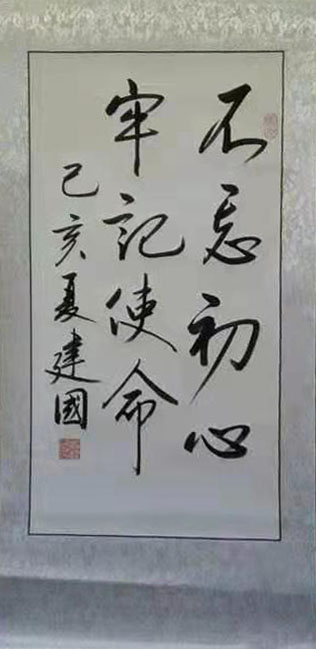 不忘初心
牢记使命
己亥夏建國